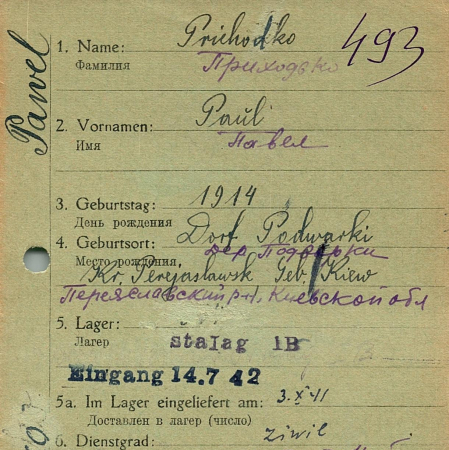 Pawel
493
1. Name: Prichodko
Фамилия Приходько
2. Vornamen: Paul
Имя Павел
3. Geburtstag: 1914
День рождения
4. Geburtsort: Dorf Podwarki
Место рождения, дер. Подварки
Kr. Perejaslawsk Geb. Kiew
Переяславский р-н, Киевской обл
5. Lager: stalag IB
Лагерь
Eingang 14.7 42
5a. Im Lager eingeliefert am: 3.X 41
Доставлен в лагерь (число)
6. Dienstgrad: Ziwil